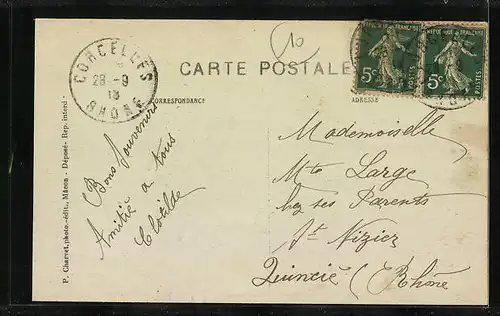 10
CORCELLES
28 - 9
13
RHONE
CARTE POSTALE
CORRESPONDANCE
ADRESSE
REPUBLIQUE FRANCAISE
5c
POSTES
REPUBLIQUE FRANCAISE
5c
POSTES
Bons Souvenirs
Amitié a tous
Clotilde
Mademoiselle
Mte Large
chez ses Parents
St Nizier
Quincié (Rhône
P. Charvet, photo.-édit., Mâcon - Déposé- Rep. interd.